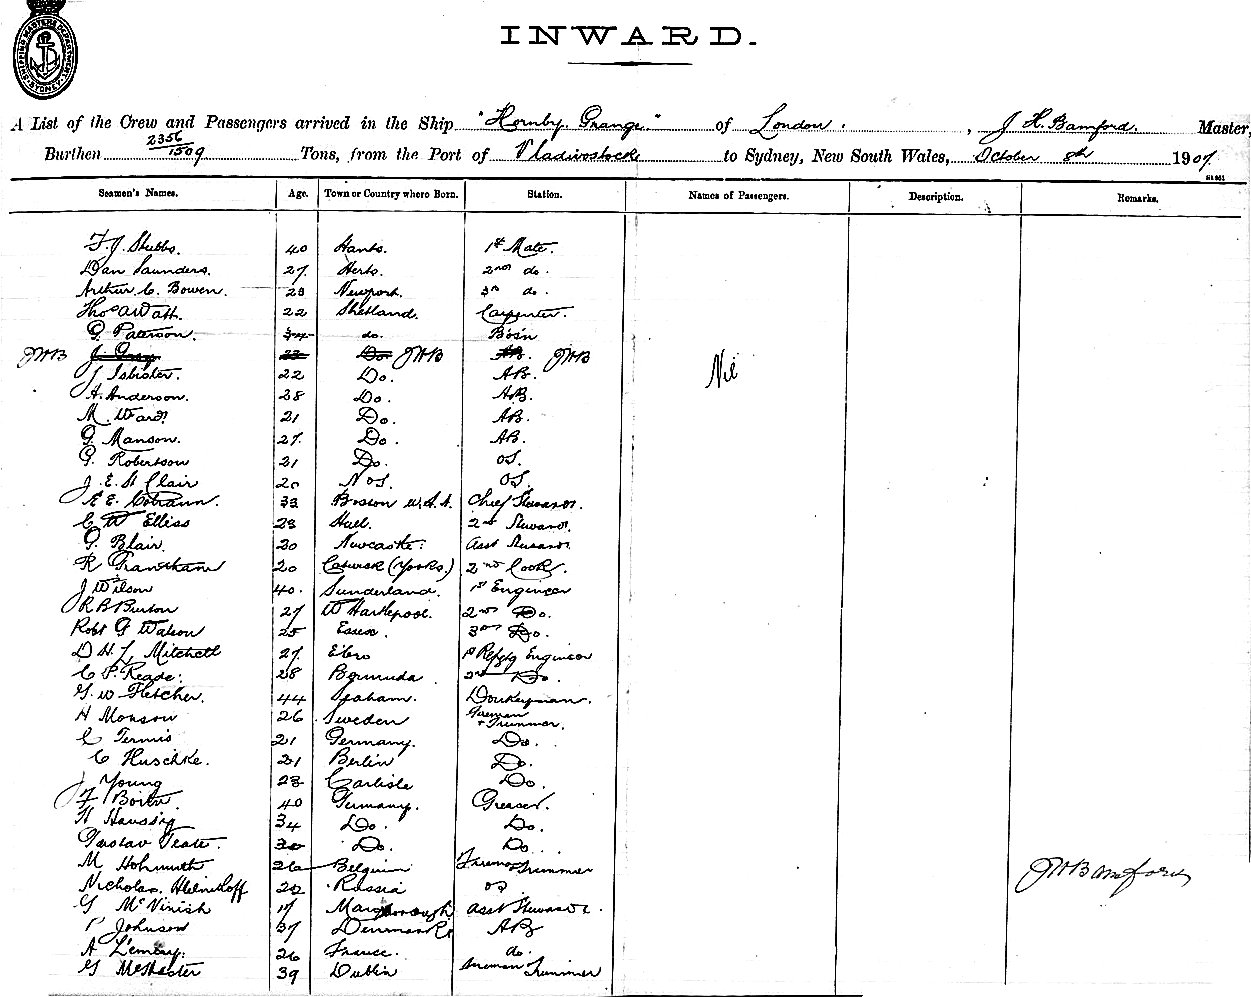 SHIPPING MASTERS DEPARTMENT SYDNEY
INWARD.
A List of the Crew and Passengers arrived in the Ship "Hornby Grange" of London, J H. Bamford. Master,
Burthen 2356/1509 Tons, from the Port of Vladivostock to Sydney, New South Wales, October 8th 1907.
Seamen's Names. Age. Town or Country where Born. Station. Names of Passengers. Description. Remarks.
F. J. Stubbs. 40 Hants. 1st Mate.
Dan Saunders. 27. Herts. 2nd do.
Arthur C. Bowen. 23 Newport. 3rd do.
Thos A Watt. 22 Shetland. Carpenter.
G. Paterson. do. Bosn
JHB J. Gray 23 Do. JHB AB. JHB
J Isbister. 22 Do. AB. Nil
A. Anderson. 28 Do. AB.
M Ward 21 Do. AB.
G. Manson. 27. Do. AB.
G. Robertson 21 Do. OS.
J. E. St Clair 20 OS.
E E. 33 Boston U.S.A. Chief Steward.
C W Elliss 23 Hull. 2nd Steward.
G. Blair. 20 Newcastle. Asst Steward.
R Grantham 20 (Yorks.) 2nd Cook.
J Wilson 40. Sunderland. 1st Engineer
R B Burton 27 W Hartlepool. 2nd Do.
Robt G Watson 25 Essex. 3rd Do.
D H J, Mitchell 27 1st Refgtg Engineer
C P. Reade. 28 Bermuda. 2nd Do.
G. W Fletcher. 44 Donkeyman.
H Monson 26 Sweden Fireman + Trimmer.
C 21 Germany. Do.
C Huschke. 21 Berlin Do.
J Young 23 Carlisle Do.
40 Germany. Greaser.
H Haussig 34 Do. Do.
Gustav 30 Do. Do.
M Hohmuth 26 Belgium Fireman Trimmer
JHBamford
Nicholas 22 Russia
G McVinish 17 Maryborough Asst Steward.
P Johnson 37 Denmark AB
A 26 France. do.
G McMaster 39 Dublin Fireman Trimmer